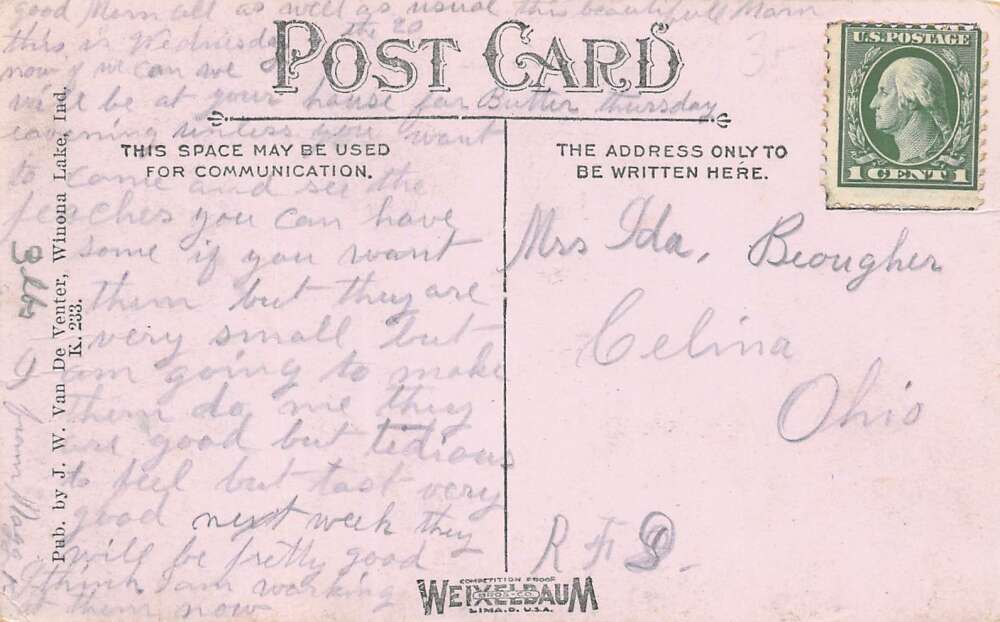 good Morn all as well as usual this beautifull Morn
this is Wednesday the 20
now if we can we
will be at your house for Butter thursday
eavening unless you want
to come and see the
peaches you can have
some if you want
them but they are
very small but
I am going to make
them do me they
are good but tedious
to peel but tast very
good next week they
will be pretty good
I think I am working
at them now
from
POST CARD
THIS SPACE MAY BE USED
FOR COMMUNICATION.
THE ADDRESS ONLY TO
BE WRITTEN HERE.
U.S. POSTAGE
1 CENT 1
Mrs Ida, Beougher
Celina
Ohio
R F D.
Pub. by J. W. Van De Venter, Winona Lake, Ind.
K. 233.
COMPETITION PROOF
WEIXELBAUM
BROS. CO.
LIMA, O. U.S.A.